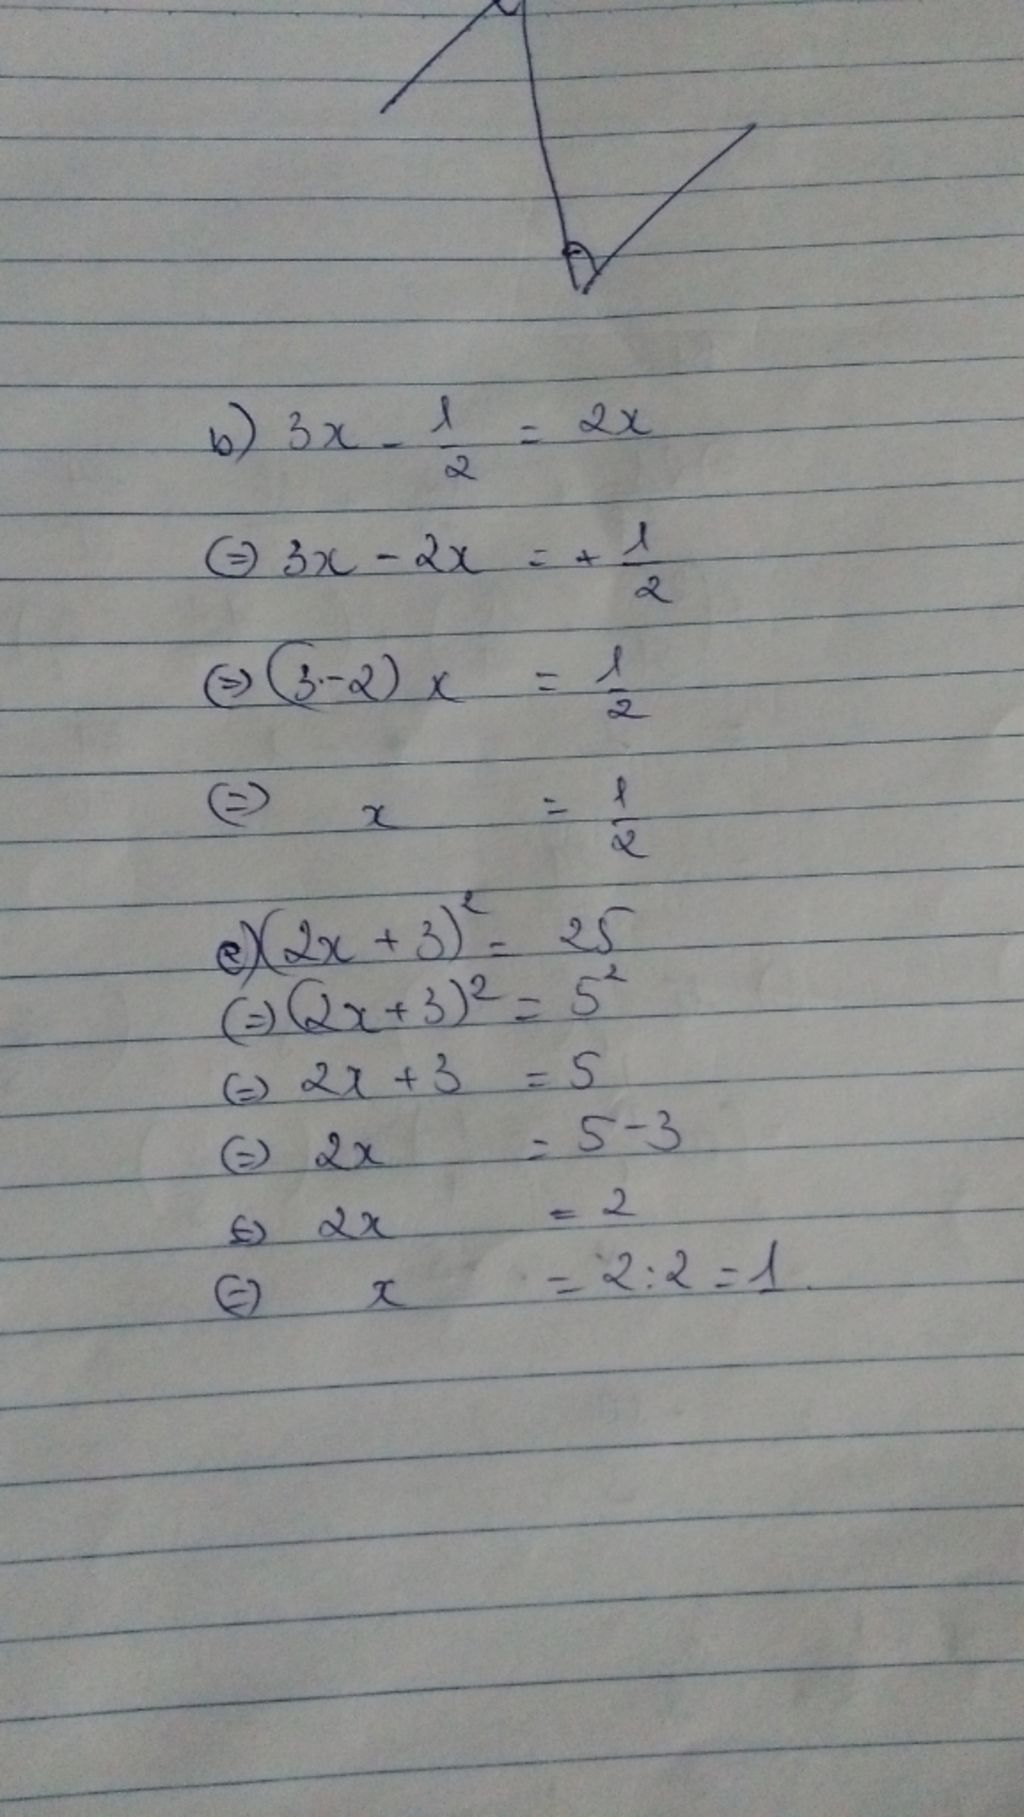 b) 3x - 1/2 = 2x
(=) 3x - 2x = + 1/2
(=) (3-2) x = 1/2
(=) x = 1/2
c) (2x + 3)² = 25
(=) (2x+3)² = 5²
(=) 2x + 3 = 5
(=) 2x = 5-3
(=) 2x = 2
(=) x = 2:2 = 1